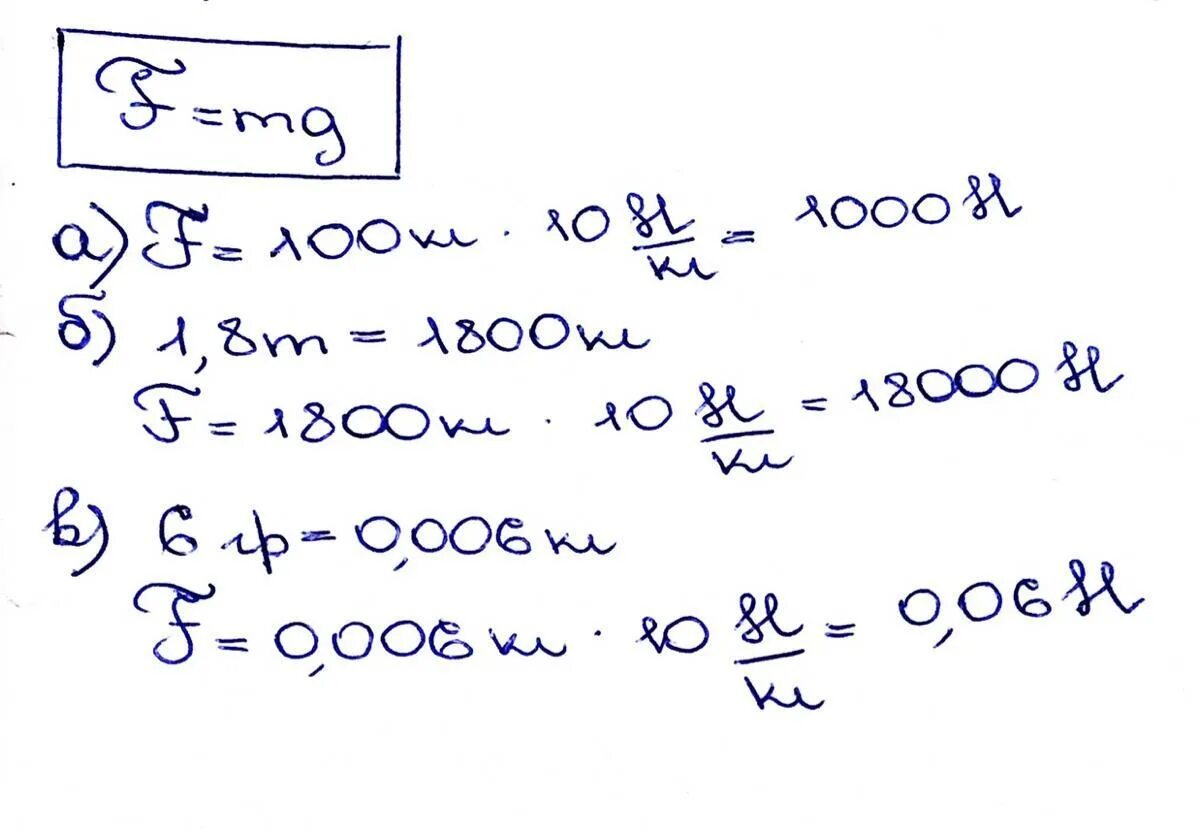 F = mg
а) F = 100кг · 10 Н/кг = 1000 Н
б) 1,8т = 1800кг
F = 1800кг · 10 Н/кг = 18000 Н
в) 6 гр = 0,006кг
F = 0,006кг · 10 Н/кг = 0,06 Н